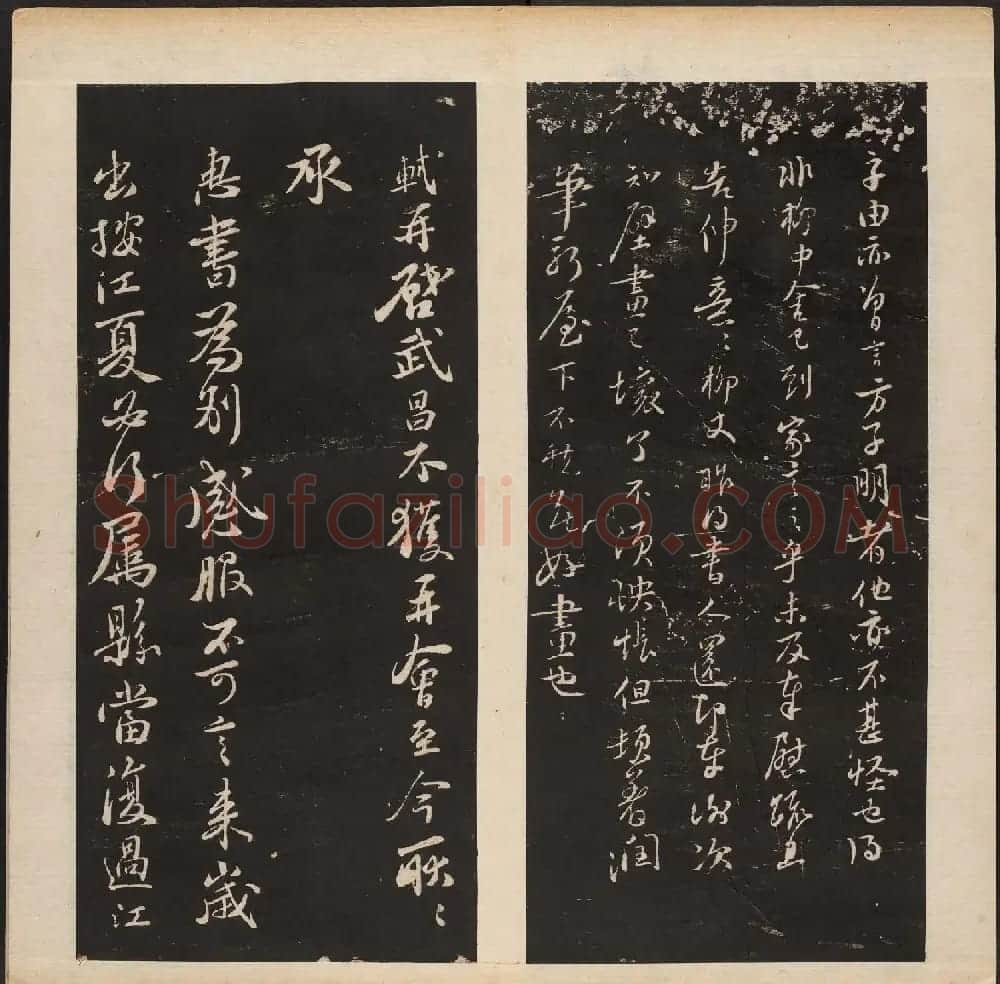 子由亦曾言方子明者他亦不甚怪也得
非柳中舍已到家言之乎未及奉慰疏且
告伸意〻柳丈昨得書人還即奉謝次
知壁畫已壞了不須怏悵但頓著潤
筆新屋下不愁無好畫也
軾再啓武昌不獲再會至今耿〻
承
惠書爲別感服不可言來歲
出按江夏必行屬縣當復過江
Shufaziliao.COM